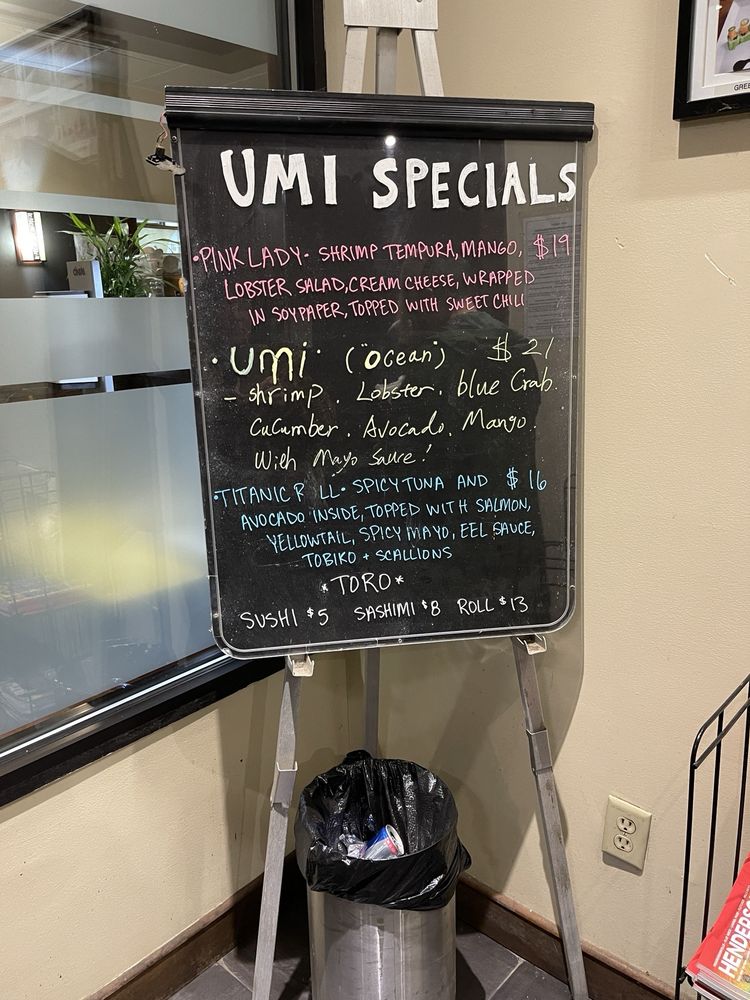 UMI SPECIALS
•PINK LADY• SHRIMP TEMPURA, MANGO, $19
LOBSTER SALAD, CREAM CHEESE, WRAPPED
IN SOYPAPER, TOPPED WITH SWEET CHILI
• UMI • (OCEAN) $21
- Shrimp. Lobster. blue Crab.
Cucumber. Avocado. Mango.
With Mayo Sauce!
•TITANIC R LL• SPICY TUNA AND $16
AVOCADO INSIDE, TOPPED WITH SALMON,
YELLOWTAIL, SPICY MAYO, EEL SAUCE,
TOBIKO + SCALLIONS
*TORO*
SUSHI $5 SASHIMI $8 ROLL $13
GREE
HENDERSO